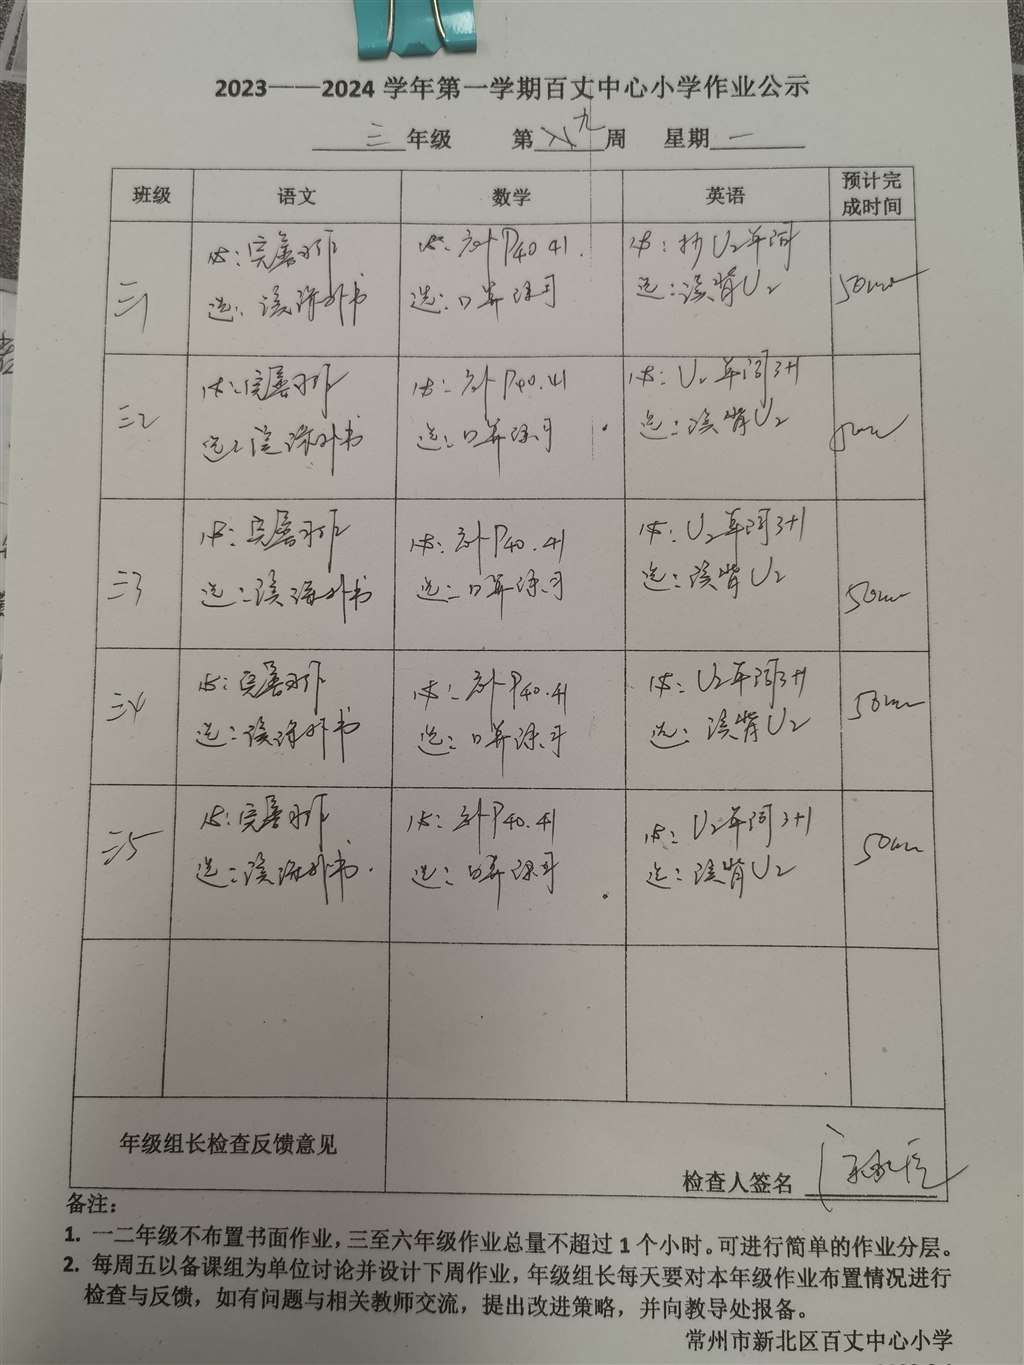 2023——2024 学年第一学期百丈中心小学作业公示
三 年级 第 九 周 星期 一
班级 语文 数学 英语 预计完成时间
三1
必：完善习作
选：读课外书
必：补P40 41.
选：口算练习
必：抄U2单词
选：读背U2
50min
三2
必：完善习作
选：读课外书
必：补P40.41
选：口算练习
必：U2单词3+1
选：读背U2
三3
必：完善习作
选：读课外书
必：补P40.41
选：口算练习
必：U2单词3+1
选：读背U2
50min
三4
必：完善习作
选：读课外书
必：补P40.41
选：口算练习
必：U2单词3+1
选：读背U2
50min
三5
必：完善习作
选：读课外书.
必：补P40.41
选：口算练习
必：U2单词3+1
选：读背U2
50min
年级组长检查反馈意见
检查人签名
备注：
1. 一二年级不布置书面作业，三至六年级作业总量不超过 1 个小时。可进行简单的作业分层。
2. 每周五以备课组为单位讨论并设计下周作业，年级组长每天要对本年级作业布置情况进行
检查与反馈，如有问题与相关教师交流，提出改进策略，并向教导处报备。
常州市新北区百丈中心小学